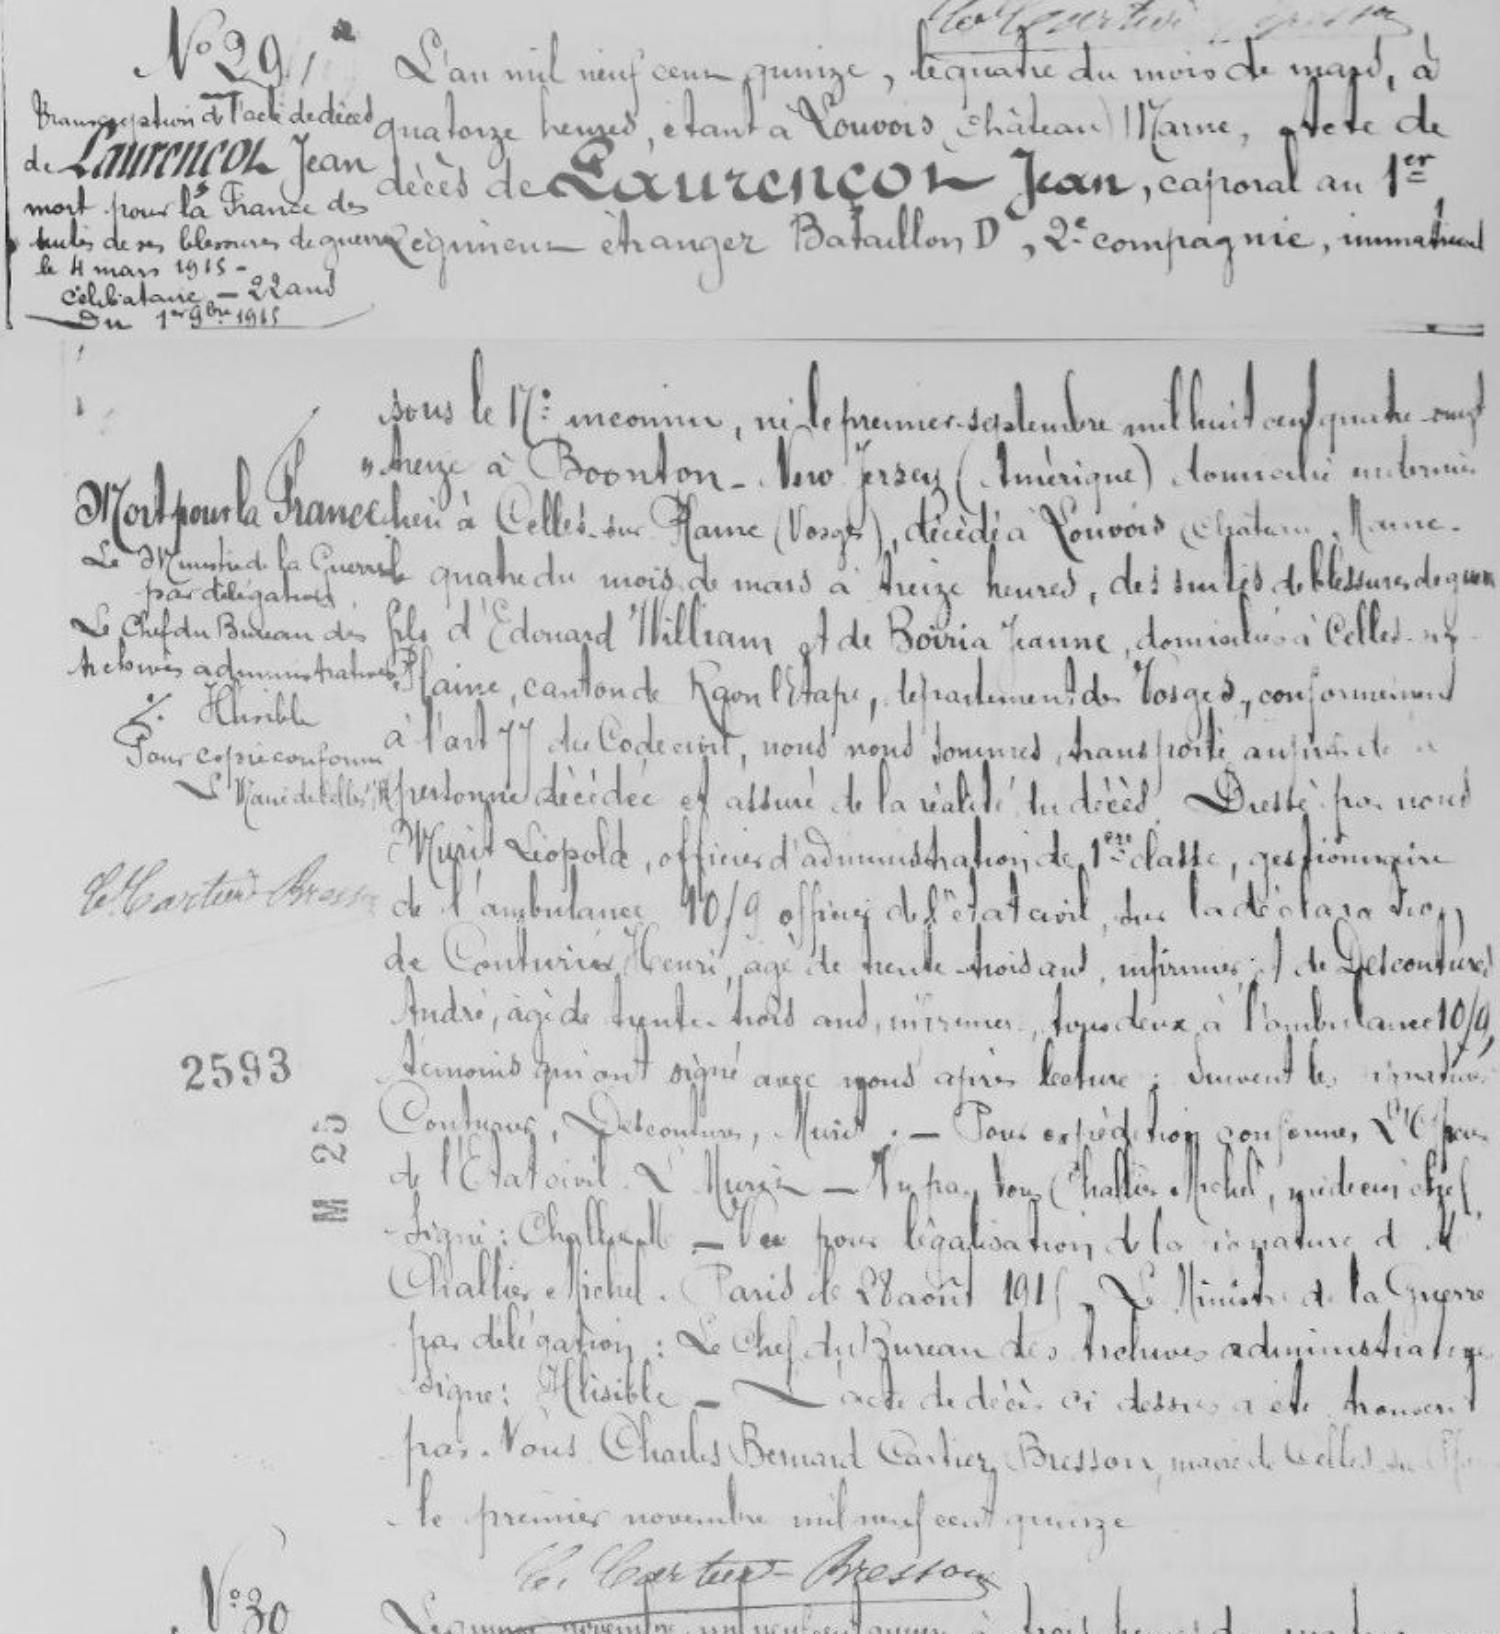 Nº 29
Transcription de l'acte de décès
de Laurençon Jean
mort pour la France des
suites de ses blessures de guerre
le 4 mars 1915 -
célibataire - 22 ans
Du 1er 9bre 1915
L'an mil neuf cent quinze, le quatre du mois de mars, à
quatorze heures, étant à Louvois (château) Marne, Acte de
décès de Laurençon Jean, caporal au 1er
Régiment étranger Bataillon D, 2e compagnie, immatriculé
sous le Nº inconnu, né le premier septembre mil huit cent quatre-vingt
treize à Boonton - New Jersey (Amérique) domicilié en dernier
lieu à Celles-sur Plaine (Vosges), décédé à Louvois (château, Marne -
le quatre du mois de mars à treize heures, des suites de blessures de guerre
fils d'Edouard William et de Boiria Jeanne, domiciliés à Celles-sur-
Plaine, canton de Raon l'Etape, département des Vosges, conformément
à l'art 77 du Code civil, nous nous sommes transporté auprès de la
personne décédée et assuré de la réalité du décès. Dressé par nous
Muret Léopold, officier d'administration de 1ère classe, gestionnaire
de l'ambulance 10/9 officier de l'état civil, sur la déclaration
de Couturier Henri, âgé de trente-trois ans, infirmier, et de Descoutures
André, âgé de trente-trois ans, infirmier, tous deux à l'ambulance 10/9,
témoins qui ont signé avec nous après lecture ; Suivent les signatures
Couturier, Descoutures, Muret . - Pour expédition conforme, L'Officier
de l'Etat civil. L Muret - Vu par nous Challier Michel, médecin chef
Signé : Challier M - Vu pour légalisation de la signature d M
Challier Michel. Paris le 28 août 1915, Le Ministre de la Guerre
par délégation : Le Chef du Bureau des Archives administratives
signé : Illisible - L'acte de décès ci dessus a été transcrit
par Nous Charles Bernard Cartier Bresson, maire de Celles sur
le premier novembre mil neuf cent quinze
Ch. Cartier-Bresson
Mort pour la France
Le Ministre de la Guerre
par délégation
Le Chef du Bureau des
Archives administratives
Illisible
Pour copie conforme
Le Maire de Celles
Ch. Cartier-Bresson
2593
M 25
Nº 30